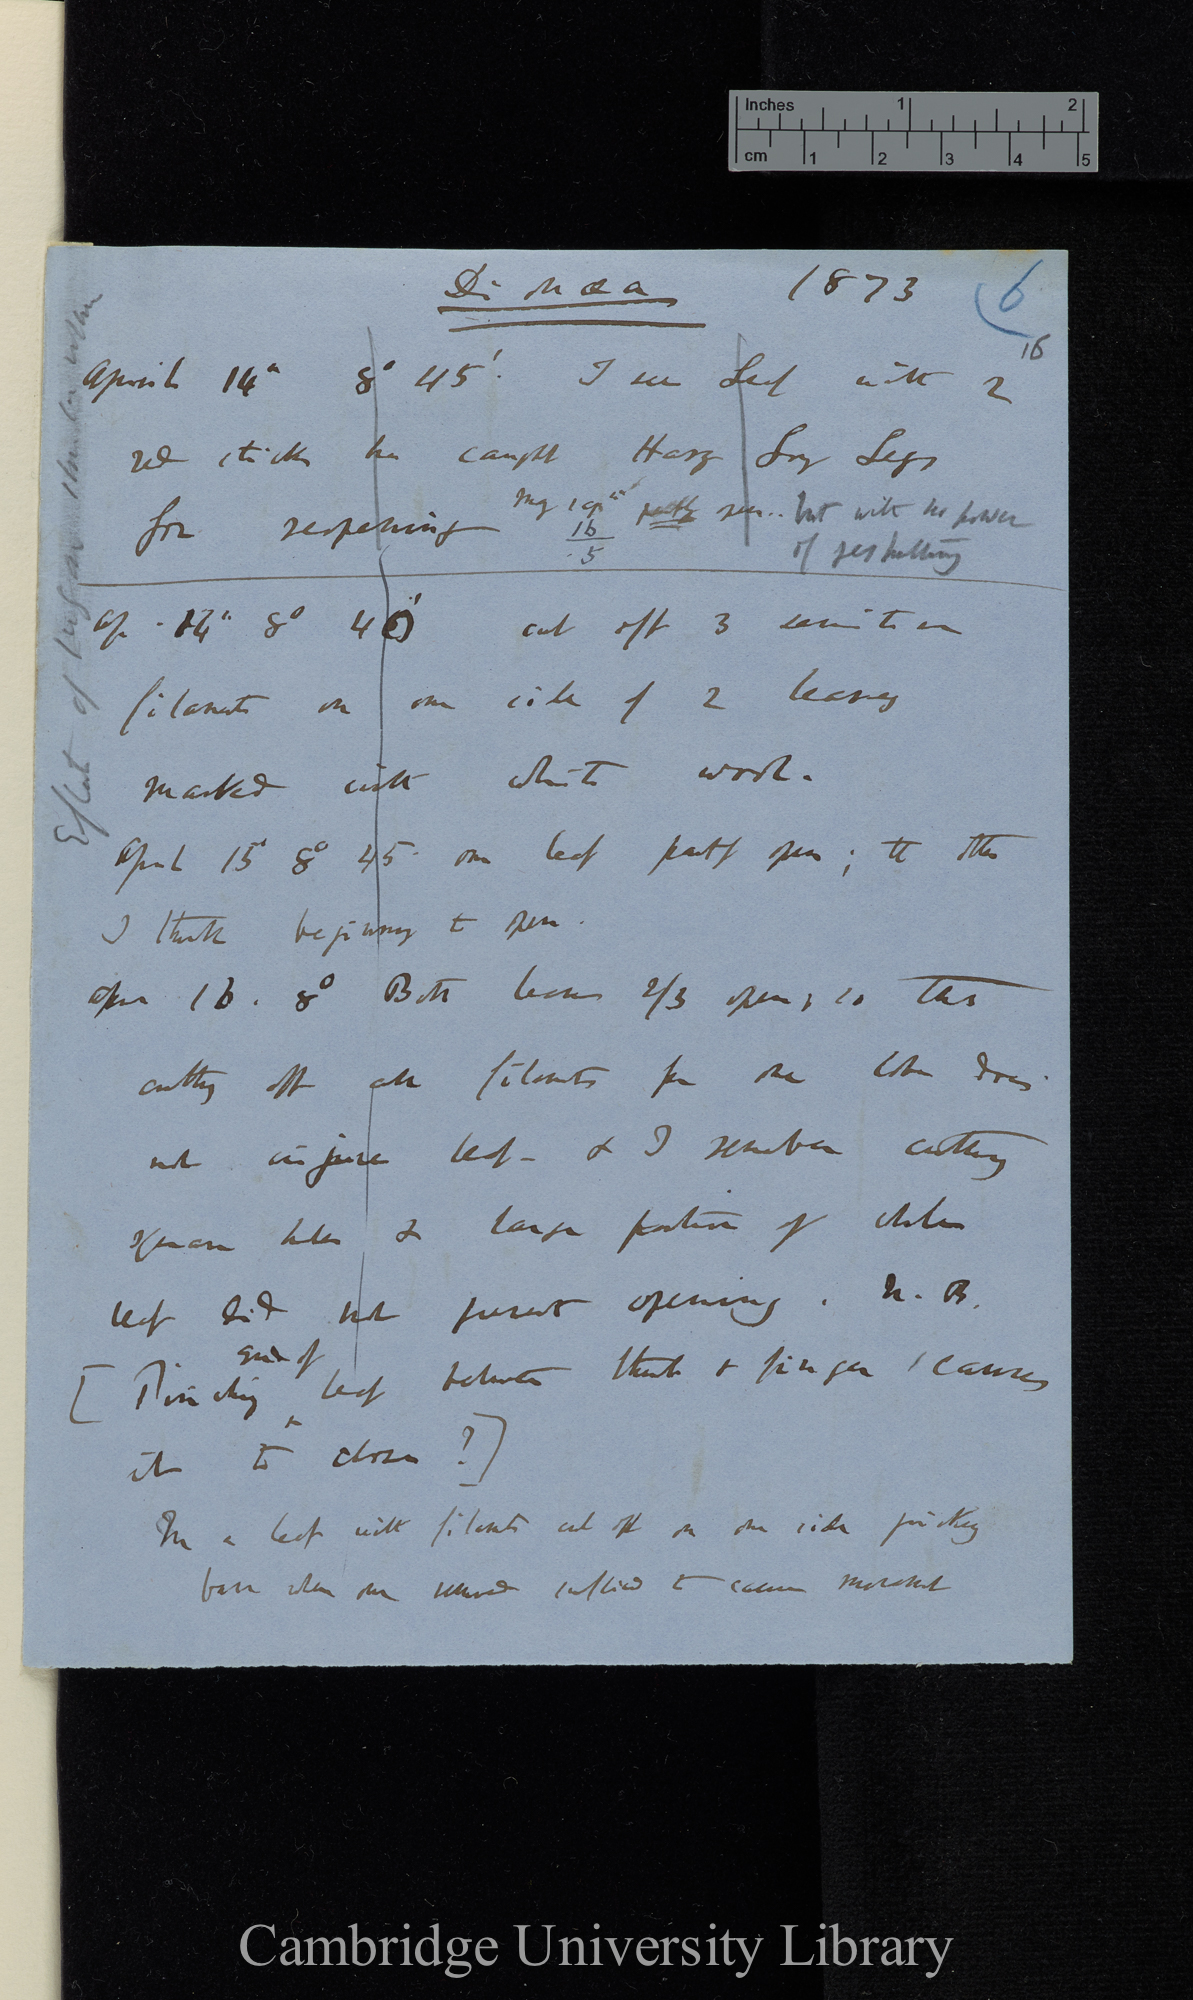 Inches 1 2
cm 1 2 3 4 5
Dionæa 1873 6
16
April 14th 8° 45' I see Leaf with 2
red sticks has caught Harry Long Legs
for reopening
but with no power
of reshutting
Ap. 14th 8° 40' cut off 3 sensitive
filaments on one side of 2 leaves
marked with white wool.
April 15 8° 45' one leaf partly open; the other
I think beginning to open.
Apr 16. 8° Both leaves 2/3 open; so that
cutting off all filaments from one lobe does
not injure leaf - & I remember cutting
square holes & large portion of whole
leaf did not prevent opening. N.B.
[Pinching end of leaf between thumb & finger causes
it to close?]
In a leaf with filaments cut off on one side pricking
base when one removed sufficed to cause movement
Effect of
Cambridge University Library